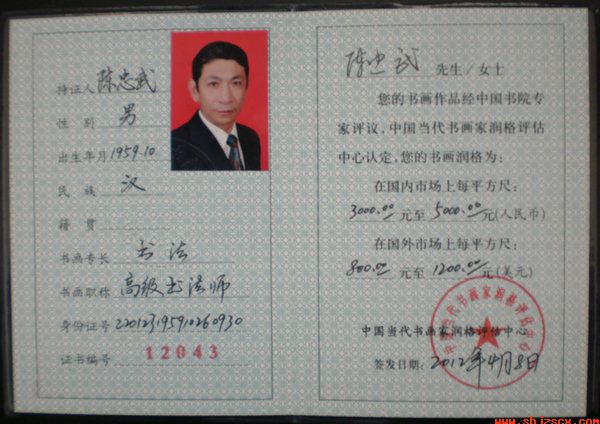 持证人 陈忠武
性 别 男
出生年月 1959.10
民 族 汉
籍 贯
书画专长 书法
书画职称 高级书法师
身份证号 220123195910260930
证书编号 12043
陈忠武 先生/女士
您的书画作品经中国书院专
家评议，中国当代书画家润格评估
中心认定，您的书画润格为：
在国内市场上每平方尺：
3000.00 元至 5000.00 元(人民币)
在国外市场上每平方尺：
800.00 元至 1200.00 元(美元)
中国当代书画家润格评估中心
签发日期：2012年4月8日
中国当代书画家润格评估中心
www.shjzscx.com